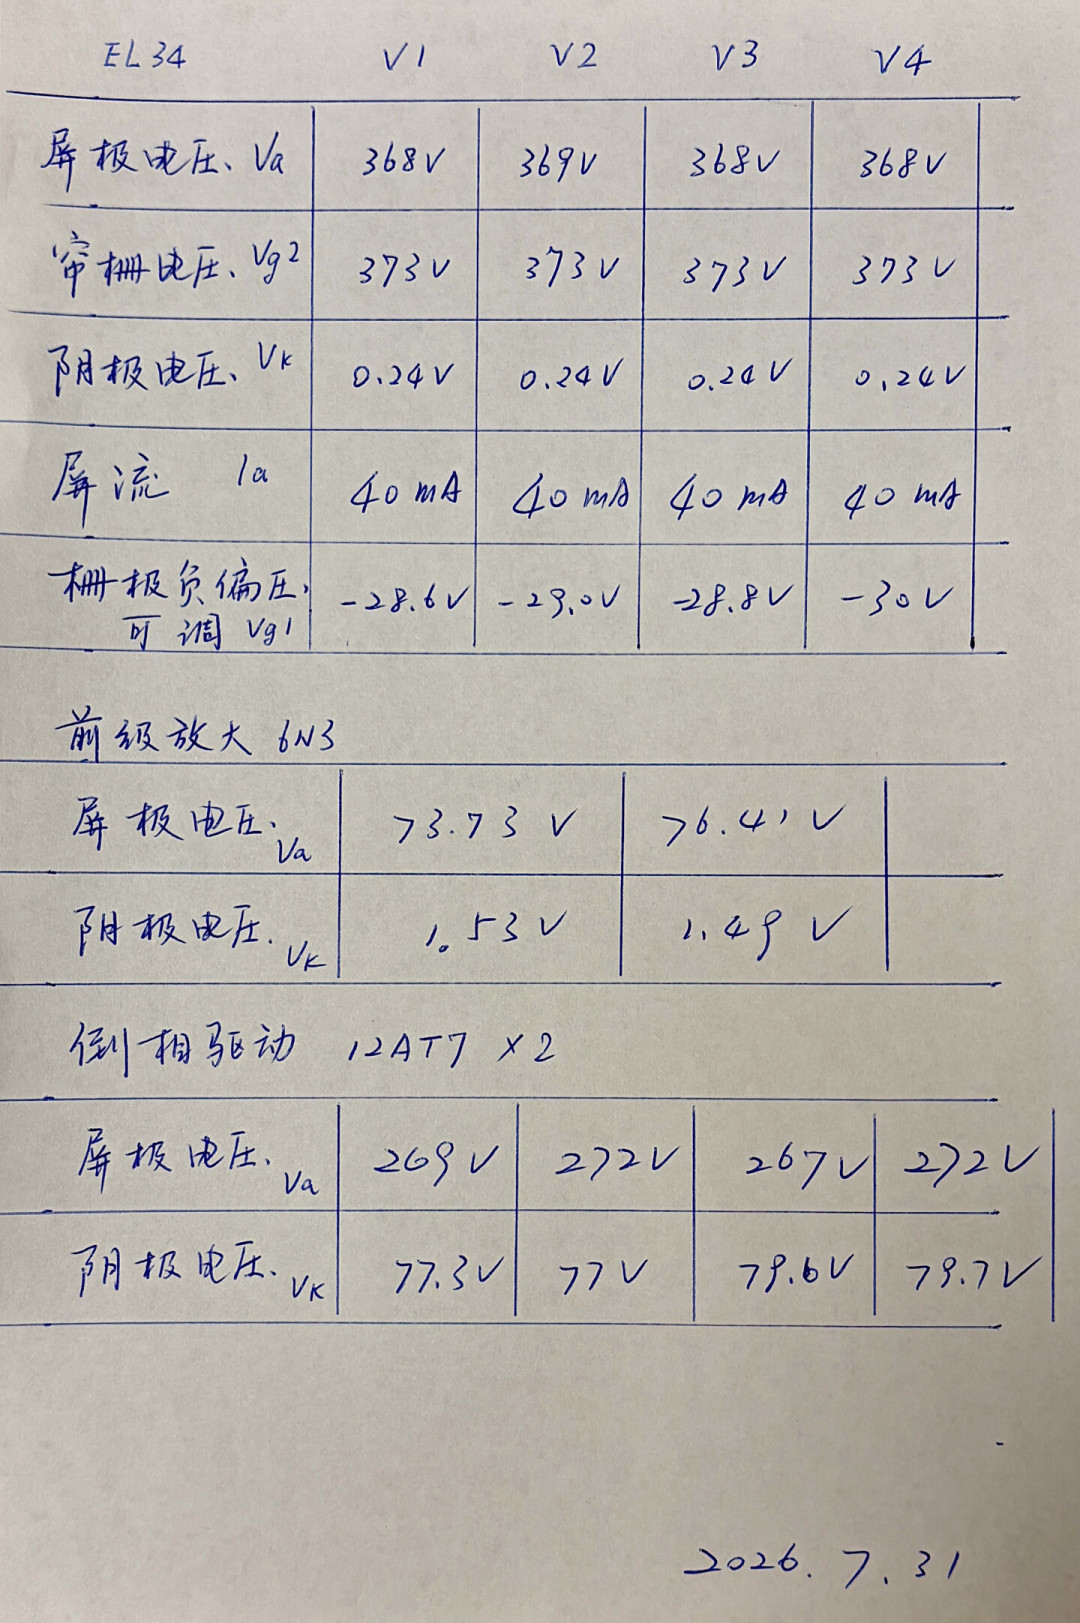 EL34 V1 V2 V3 V4
屏极电压、Va 368V 369V 368V 368V
帘栅电压、Vg2 373V 373V 373V 373V
阴极电压、Vk 0.24V 0.24V 0.24V 0.24V
屏流 Ia 40mA 40mA 40mA 40mA
栅极负偏压、 -28.6V -29.0V -28.8V -30V
可调 Vg1
前级放大 6N3
屏极电压、Va 73.73V 76.41V
阴极电压、Vk 1.53V 1.49V
倒相驱动 12AT7 ×2
屏极电压、Va 269V 272V 267V 272V
阴极电压、Vk 77.3V 77V 79.6V 79.7V
2026.7.31